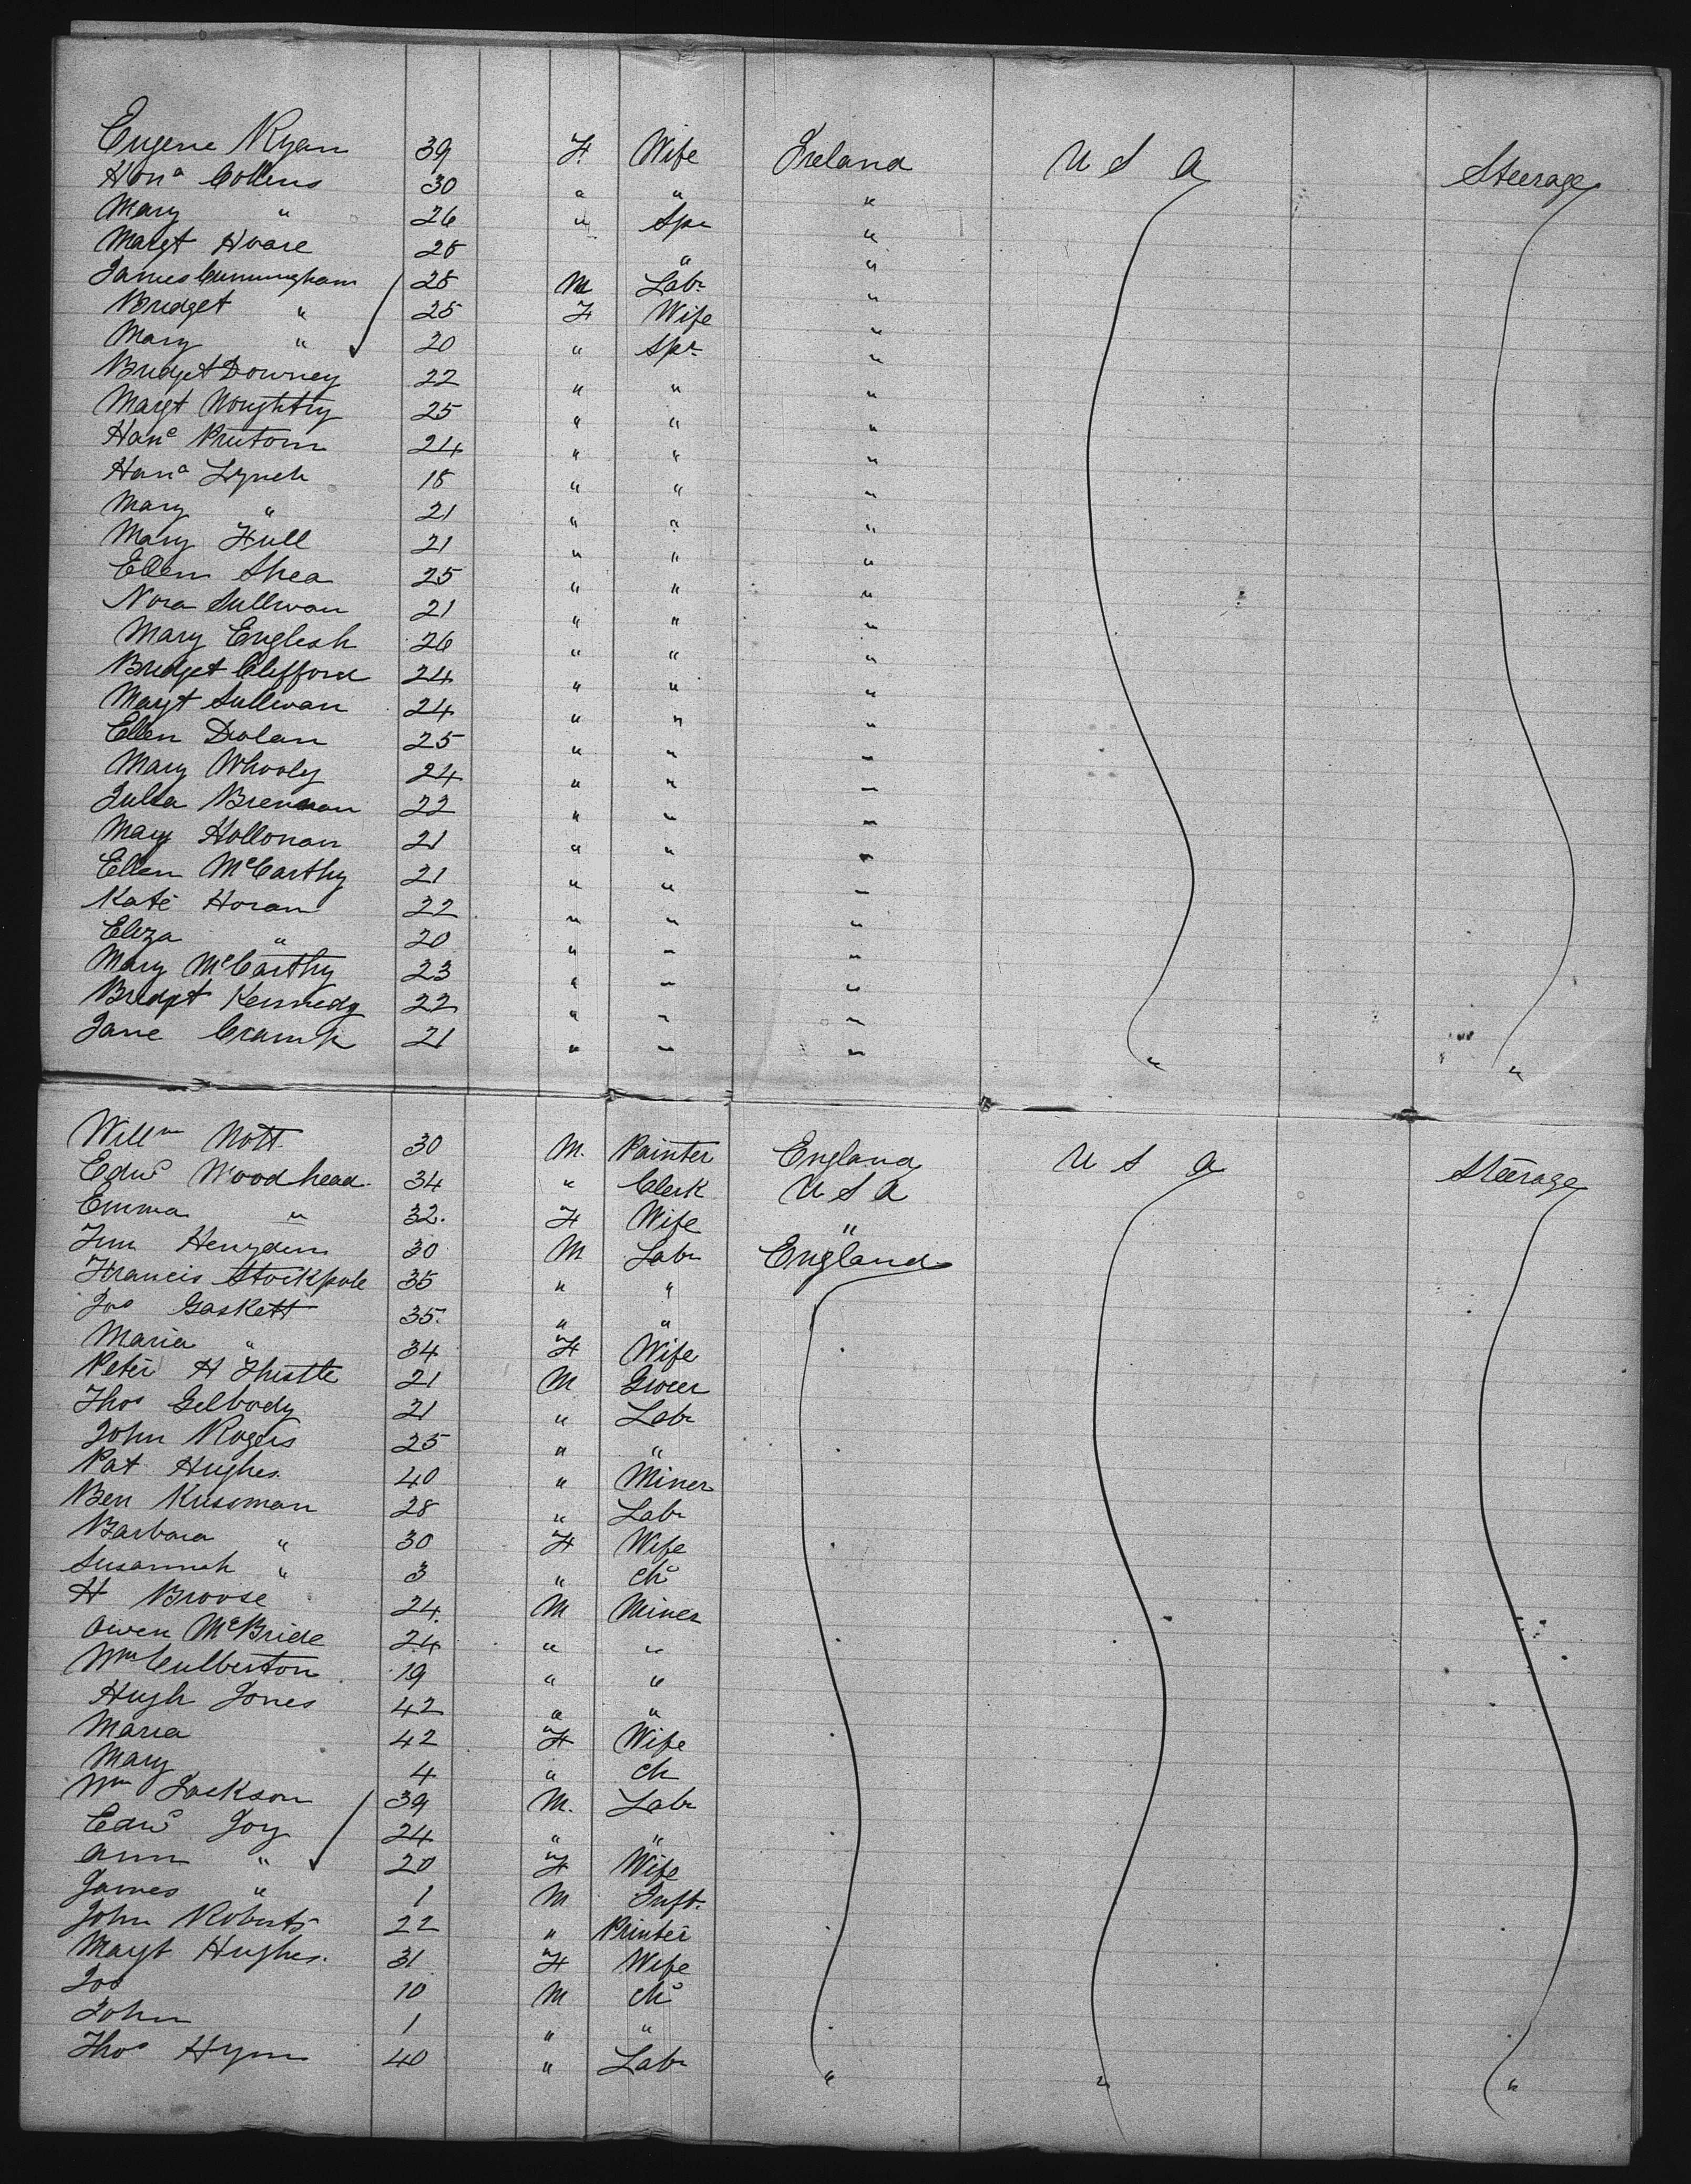 Eugene Ryan 39 F. Wife Ireland U S A Steerage
Hona Collins 30 " " "
Mary " 26 " Spr "
Margt Hoare 28 " "
James Cunningham 28 M Labr "
Bridget " 25 F Wife "
Mary " 20 " Spr "
Bridget Downey 22 " " "
Margt 25 " " "
Hana 24 " " "
Hana Lynch 18 " " "
Mary " 21 " " "
Mary Hull 21 " " "
Ellen Shea 25 " " "
Nora Sullivan 21 " " "
Mary English 26 " " "
Bridget Clifford 24 " " "
Margt Sullivan 24 " " "
Ellen Dolan 25 " " "
Mary Whooly 24 " " "
Julia Brennan 22 " " "
Mary Hollonan 21 " " "
Ellen McCarthy 21 " " "
Kate Horan 22 " " "
Eliza " 20 " " "
Mary McCarthy 23 " " "
Bridget Kennedy 22 " " "
Jane Cramp 21 " " " " "
Willm Nott 30 M. Painter England U S A Steerage
Edwd Woodhead 34 " Clerk U S A
Emma " 32. F Wife "
30 M Labr England
Francis Stockpole 35 " "
Jos Gaskett 35. " "
Maria " 34 F Wife
Peter H Thistle 21 M Grocer
Thos Gelbody 21 " Labr
John Rogers 25 " "
Pat Hughes 40 " Miner
Ben Kussman 28 " Labr
Barbara " 30 F Wife
Susannah " 3 " chd
H Broose 24. M Miner
Owen McBride 24 " "
Wm Culberton 19 " "
Hugh Jones 42 " "
Maria 42 F Wife
Mary 4 " ch
Wm Jackson 39 M. Labr
Edwd Joy 24 " "
Ann " 20 F Wife
James " 1 M Inft.
John Roberts 22 " Printer
Margt Hughes. 31 F Wife
Jos 10 M chd
John 1 " "
Thos Hynes 40 " Labr " " "